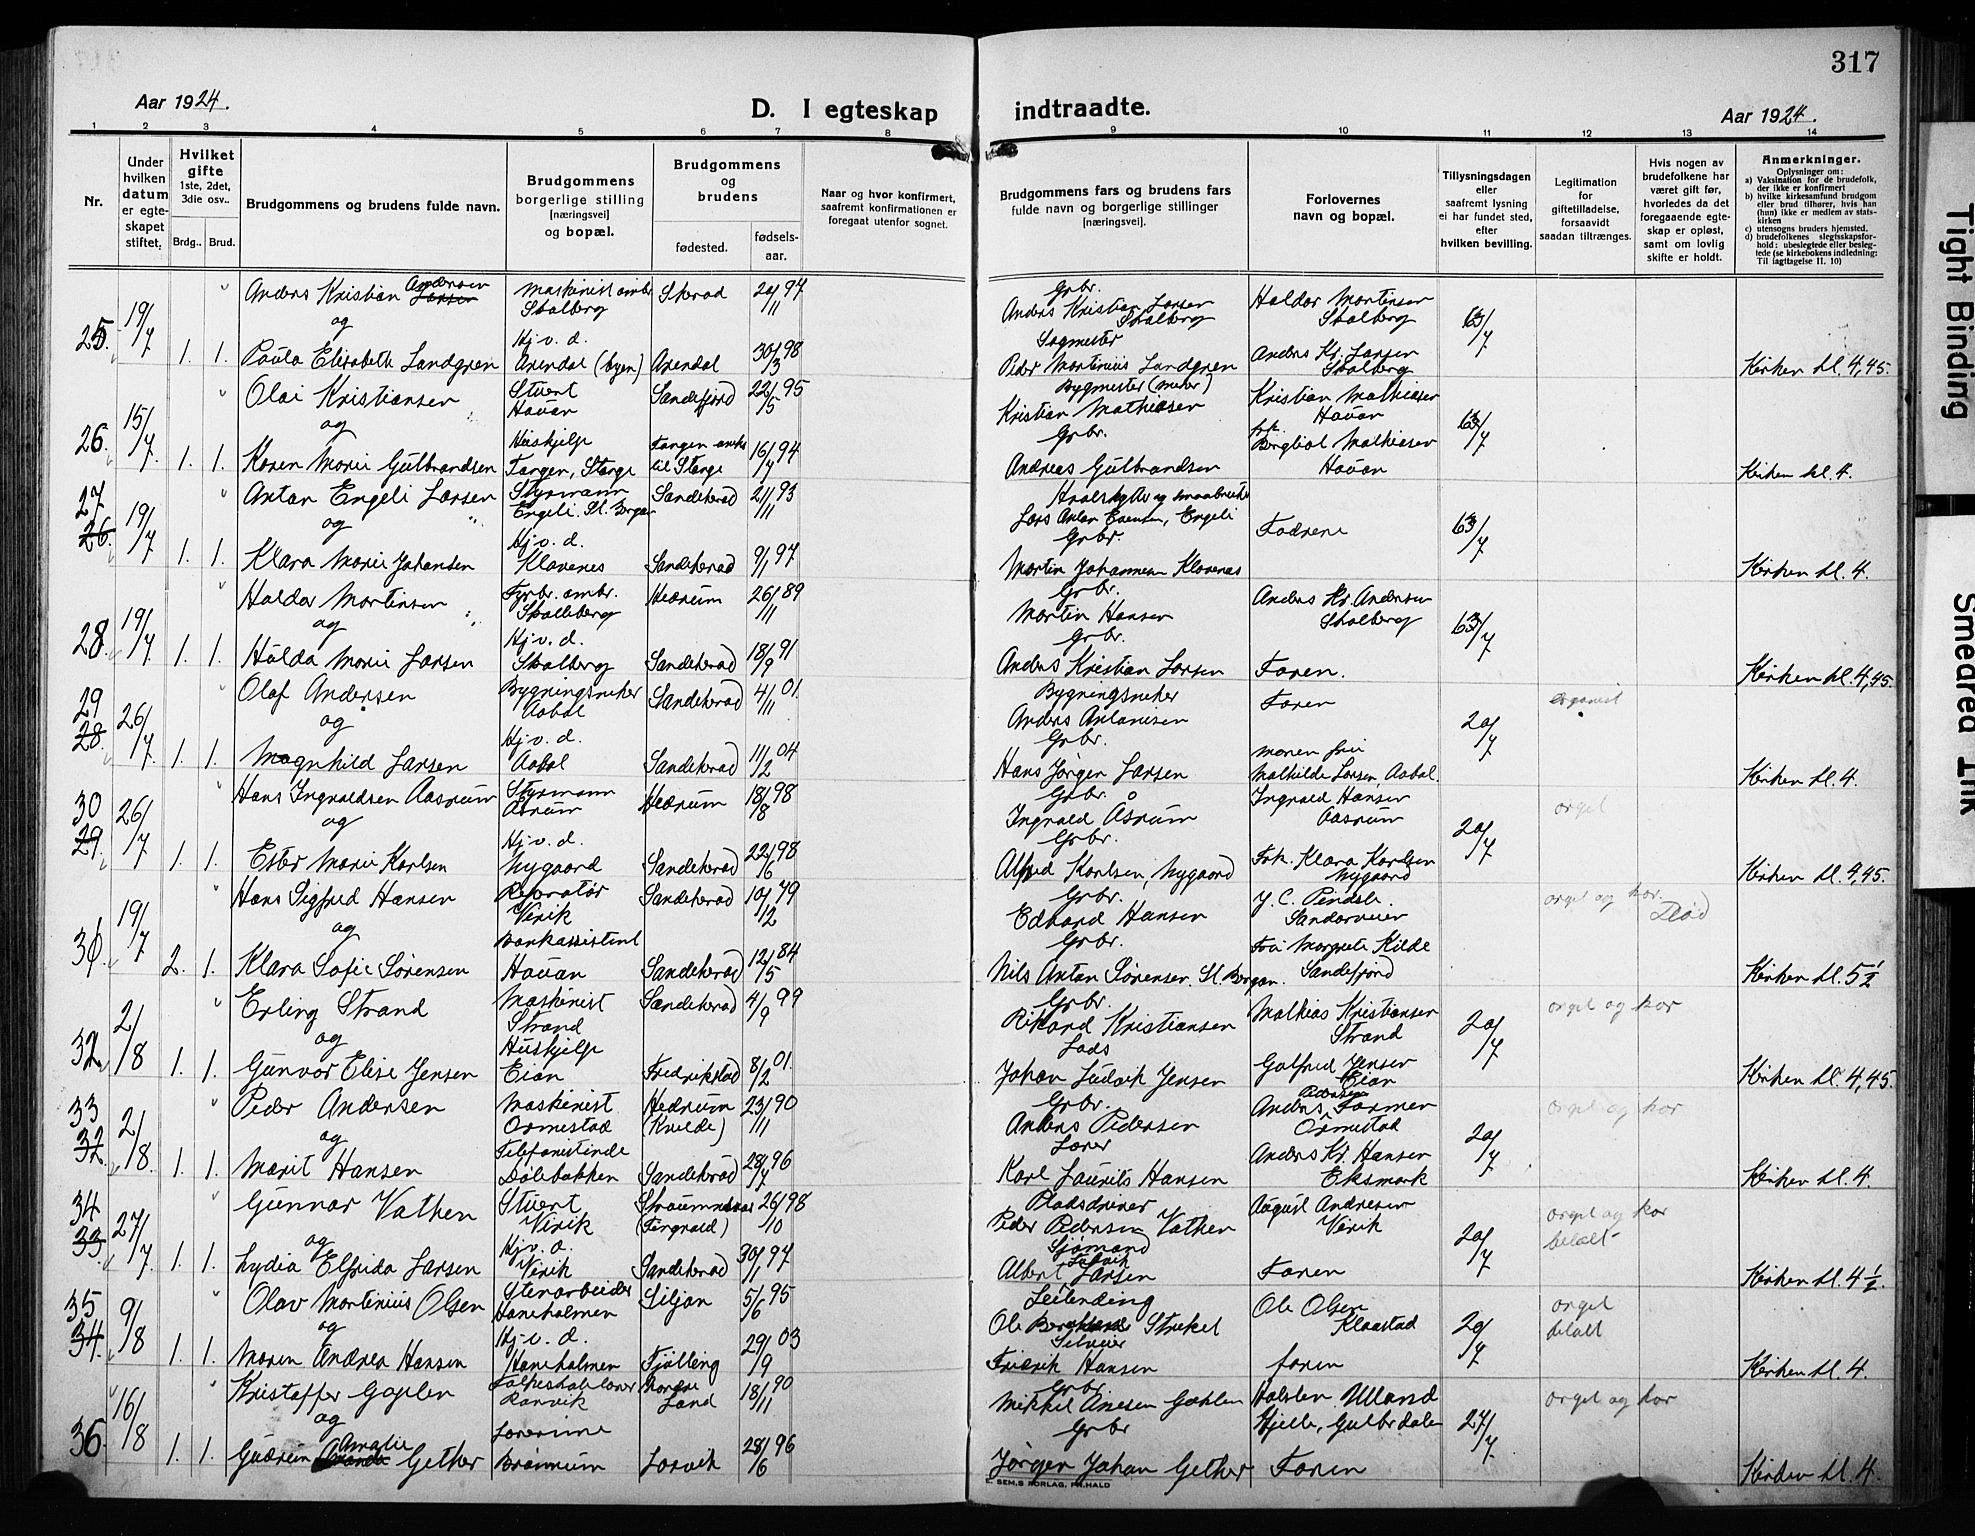 317
Aar 1924.
D. I egteskap indtraadte.
Aar 1924.
1 2 3 4 5 6 7 8 9 10 11 12 13 14
Nr.
Under hvilken datum er egteskapet stiftet.
Hvilket gifte 1ste, 2det, 3die osv..
Brdg.. Brud.
Brudgommens og brudens fulde navn.
Brudgommens borgerlige stilling [næringsvei] og bopæl.
Brudgommens og brudens
fødested.
fødselsaar.
Naar og hvor konfirmert, saafremt konfirmationen er foregaat utenfor sognet.
Brudgommens fars og brudens fars fulde navn og borgerlige stillinger [næringsvei].
Forlovernes navn og bopæl.
Tillysningsdagen eller saafremt lysning ei har fundet sted, efter hvilken bevilling.
Legitimation for giftetilladelse, forsaavidt saadan tiltrænges.
Hvis nogen av brudefolkene har været gift før, hvorledes da det foregaaende egteskap er opløst, samt om lovlig skifte er holdt.
Anmerkninger.
Oplysninger om:
a) Vaksination for de brudefolk, der ikke er konfirmert
b) hvilke kirkesamfund brudgom eller brud tilhører, hvis han (hun) ikke er medlem av statskirken
c) utensogns bruders hjemsted.
d) brudefolkenes slegtsskapsforhold: ubeslegtede eller beslegtede (se kirkebokens indledning: Til iagttagelse II. 10)
25 19/7 1. 1.
Anders Kristian Andersen Larsen
og
Paula Elisabeth Landgren
Skalberg
Hj v. d.
Arendal (byen)
Skerad 20/11 97
Arendal 30/3 98
Grbr.
Anders Kristian Larsen Skalberg
Sagmester
Peder Martinius Landgren
Haldor Martinsen Skalberg
Anders Kr. Larsen Skalberg
Kirken kl. 4,45.
26. 15/7. 1. 1.
Olai Kristiansen
og
Karen Marie Gulbrandsen
Stuert
Hauan
Huskjelp
Tangen, Stange
Sandefjord 22/5 95
til Stange 16/4 94
Bygmester (murer)
Kristian Mathiasen
Grbr.
Andreas Gulbrandsen
Kristian Mathiasen
Hauan
frk. Bergliot Mathiasen
Hauan
Kirken kl. 4.
27 26. 19/7 1. 1.
Anton Engeli Larsen
og
Klara Marie Johansen
Styrmann
Hj v. d.
Klavenes
Sandeherad 21/11 93
Sandeherad 9/1 97
Grbr.
Martin Johannesen Klavenes
Fædrene
Kirken kl. 4.
28. 19/7 1. 1.
Haldor Martinsen
og
Hulda Marie Larsen
Fyrbr. ambr.
Skalleberg
Hj v. d.
Skalberg
Hedrum 26/11 89
Sandeherad 18/9 91
Grbr.
Martin Hansen
Grbr.
Anders Kristian Larsen
Anders Kr. Andersen
Skalberg
Faren.
Kirken kl. 4,45.
29 28. 26/7. 1. 1.
Olaf Andersen
og
Magnhild Larsen
Bygningssnekker
Aabøl
Hj v. d.
Aabøl
Sandeherad 4/11 01.
Sandeherad 11/2 04
Bygningsneker
Anders Antonisen
Grbr.
Hans Jørgen Larsen
Faren
moren fru
Mathilde Larsen Aabøl.
20/7
organist
Kirken kl. 4.
30 29. 26/7 1. 1.
Hans Ingvaldsen Aasrum
og
Ester Marie Karlsen
Styrmann
Åsrum
Hj v. d.
Nygaard
Hedrum 18/8 98
Sandeherad 22/6 98
Grbr.
Ingvald Åsrum
Grbr.
Alfred Karlsen, Nygaard
Ingvald Hansen
Aasrum
Frk. Klara Karlsen
Nygaard
20/7
orgel
Kirken kl. 4,45.
31 19/7 2. 1.
Hans Sigfred Hansen
og
Klara Sofie Sørensen
Reparatør
Virik
Bankassistent
Hauan
Sandeherad 10/12 79
Sandeherad 12/5 84
Grbr.
Edvard Hansen
Grbr.
Nils Anton Sørensen St. Bergan.
J. C. Pindsle.
Sandarveien
Fru Margrete Kilde
Sandefjord
orgel og kor.
Død
Kirken kl. 5 1/2
32 2/8 1. 1.
Erling Strand
og
Gunvor Elise Jensen
Maskinist
Strand
Huskjelp
Eian
Sandeherad 4/9 99
Fredrikstad 8/2 01.
Grbr.
Rikard Kristiansen
Lods
Johan Ludvik Jensen
Mathias Kristiansen
Strand
Gotfred Jensen
Eian
20/7
orgel og kor
Kirken kl. 4,45.
33 32. 2/8. 1. 1.
Peder Andersen
og
Marit Hansen
Maskinist
Ormestad
Telefonistinde
Dølebakken
Hedrum (Kvelde) 23/11 90
Sandeherad 28/7 96
Grbr.
Anders Pedersen
Lærer
Karl Laurits Hansen
Anders Pedersen Farmen
Ormestad
Anders Kr. Hansen
Eksmark
20/7
orgel og kor
Kirken kl. 4.
34 33. 27/7. 1. 1.
Gunnar Vathen
og
Lydia Elfrida Larsen
Stuert
Virik
Hj v. d.
Virik
26/10 98
Sandeherad 30/1 97
Peder Pedersen Vathen
Sjømand
Albert Larsen
August Andresen
Virik
Faren
20/7
orgel og kor
betalt
Kirken kl. 4 1/2.
35 34. 9/8 1. 1.
Olav Martinius Olsen
og
Maren Andrea Hansen
Stenarbeider
Haneholmen
Hj v. d.
Haneholmen
Siljan 5/6 95
Tjølling 29/9 03
Leilending
Fredrik Hansen
Ole Olsen
Klaastad
faren
20/7
orgel
betalt
Kirken kl. 4.
36. 16/8 1. 1.
Kristoffer Goplen
og
Gudrun Amalie Gether
Folkeskolelærer
Ranvik
Lærerinne
Brønnum
Nordre Land 18/11 90
Larvik 28/6 96
Grbr
Grbr
Jørgen Johan Gether
Halsten Ulland
Hjelle, Gulbr dalen
Faren
27/7
orgel og kor
Kirken kl. 4.
E. SEM.S FORLAG, FR.HALD
Tight Binding
Smeared Ink